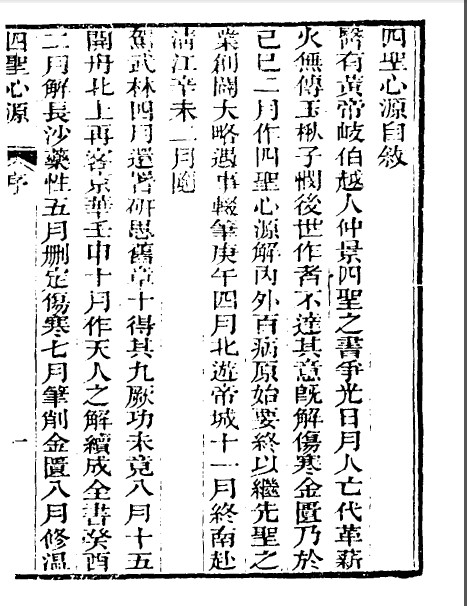 四聖心源自敘
醫有黃帝岐伯越人仲景四聖之書爭光日月人亡代革薪
火無傳玉楸子憫後世作者不達其意旣解傷寒金匱乃於
己巳二月作四聖心源解內外百病原始要終以繼先聖之
業創闢大略遇事輟筆庚午四月北遊帝城十一月終南赴
淸江辛未二月隨
駕武林四月還署硏思舊章十得其九厥功未竟八月十五
開舟北上再客京華壬申十月作天人之解續成全書癸酉
二月解長沙藥性五月删定傷寒七月筆削金匱八月修溫
四聖心源 序 一